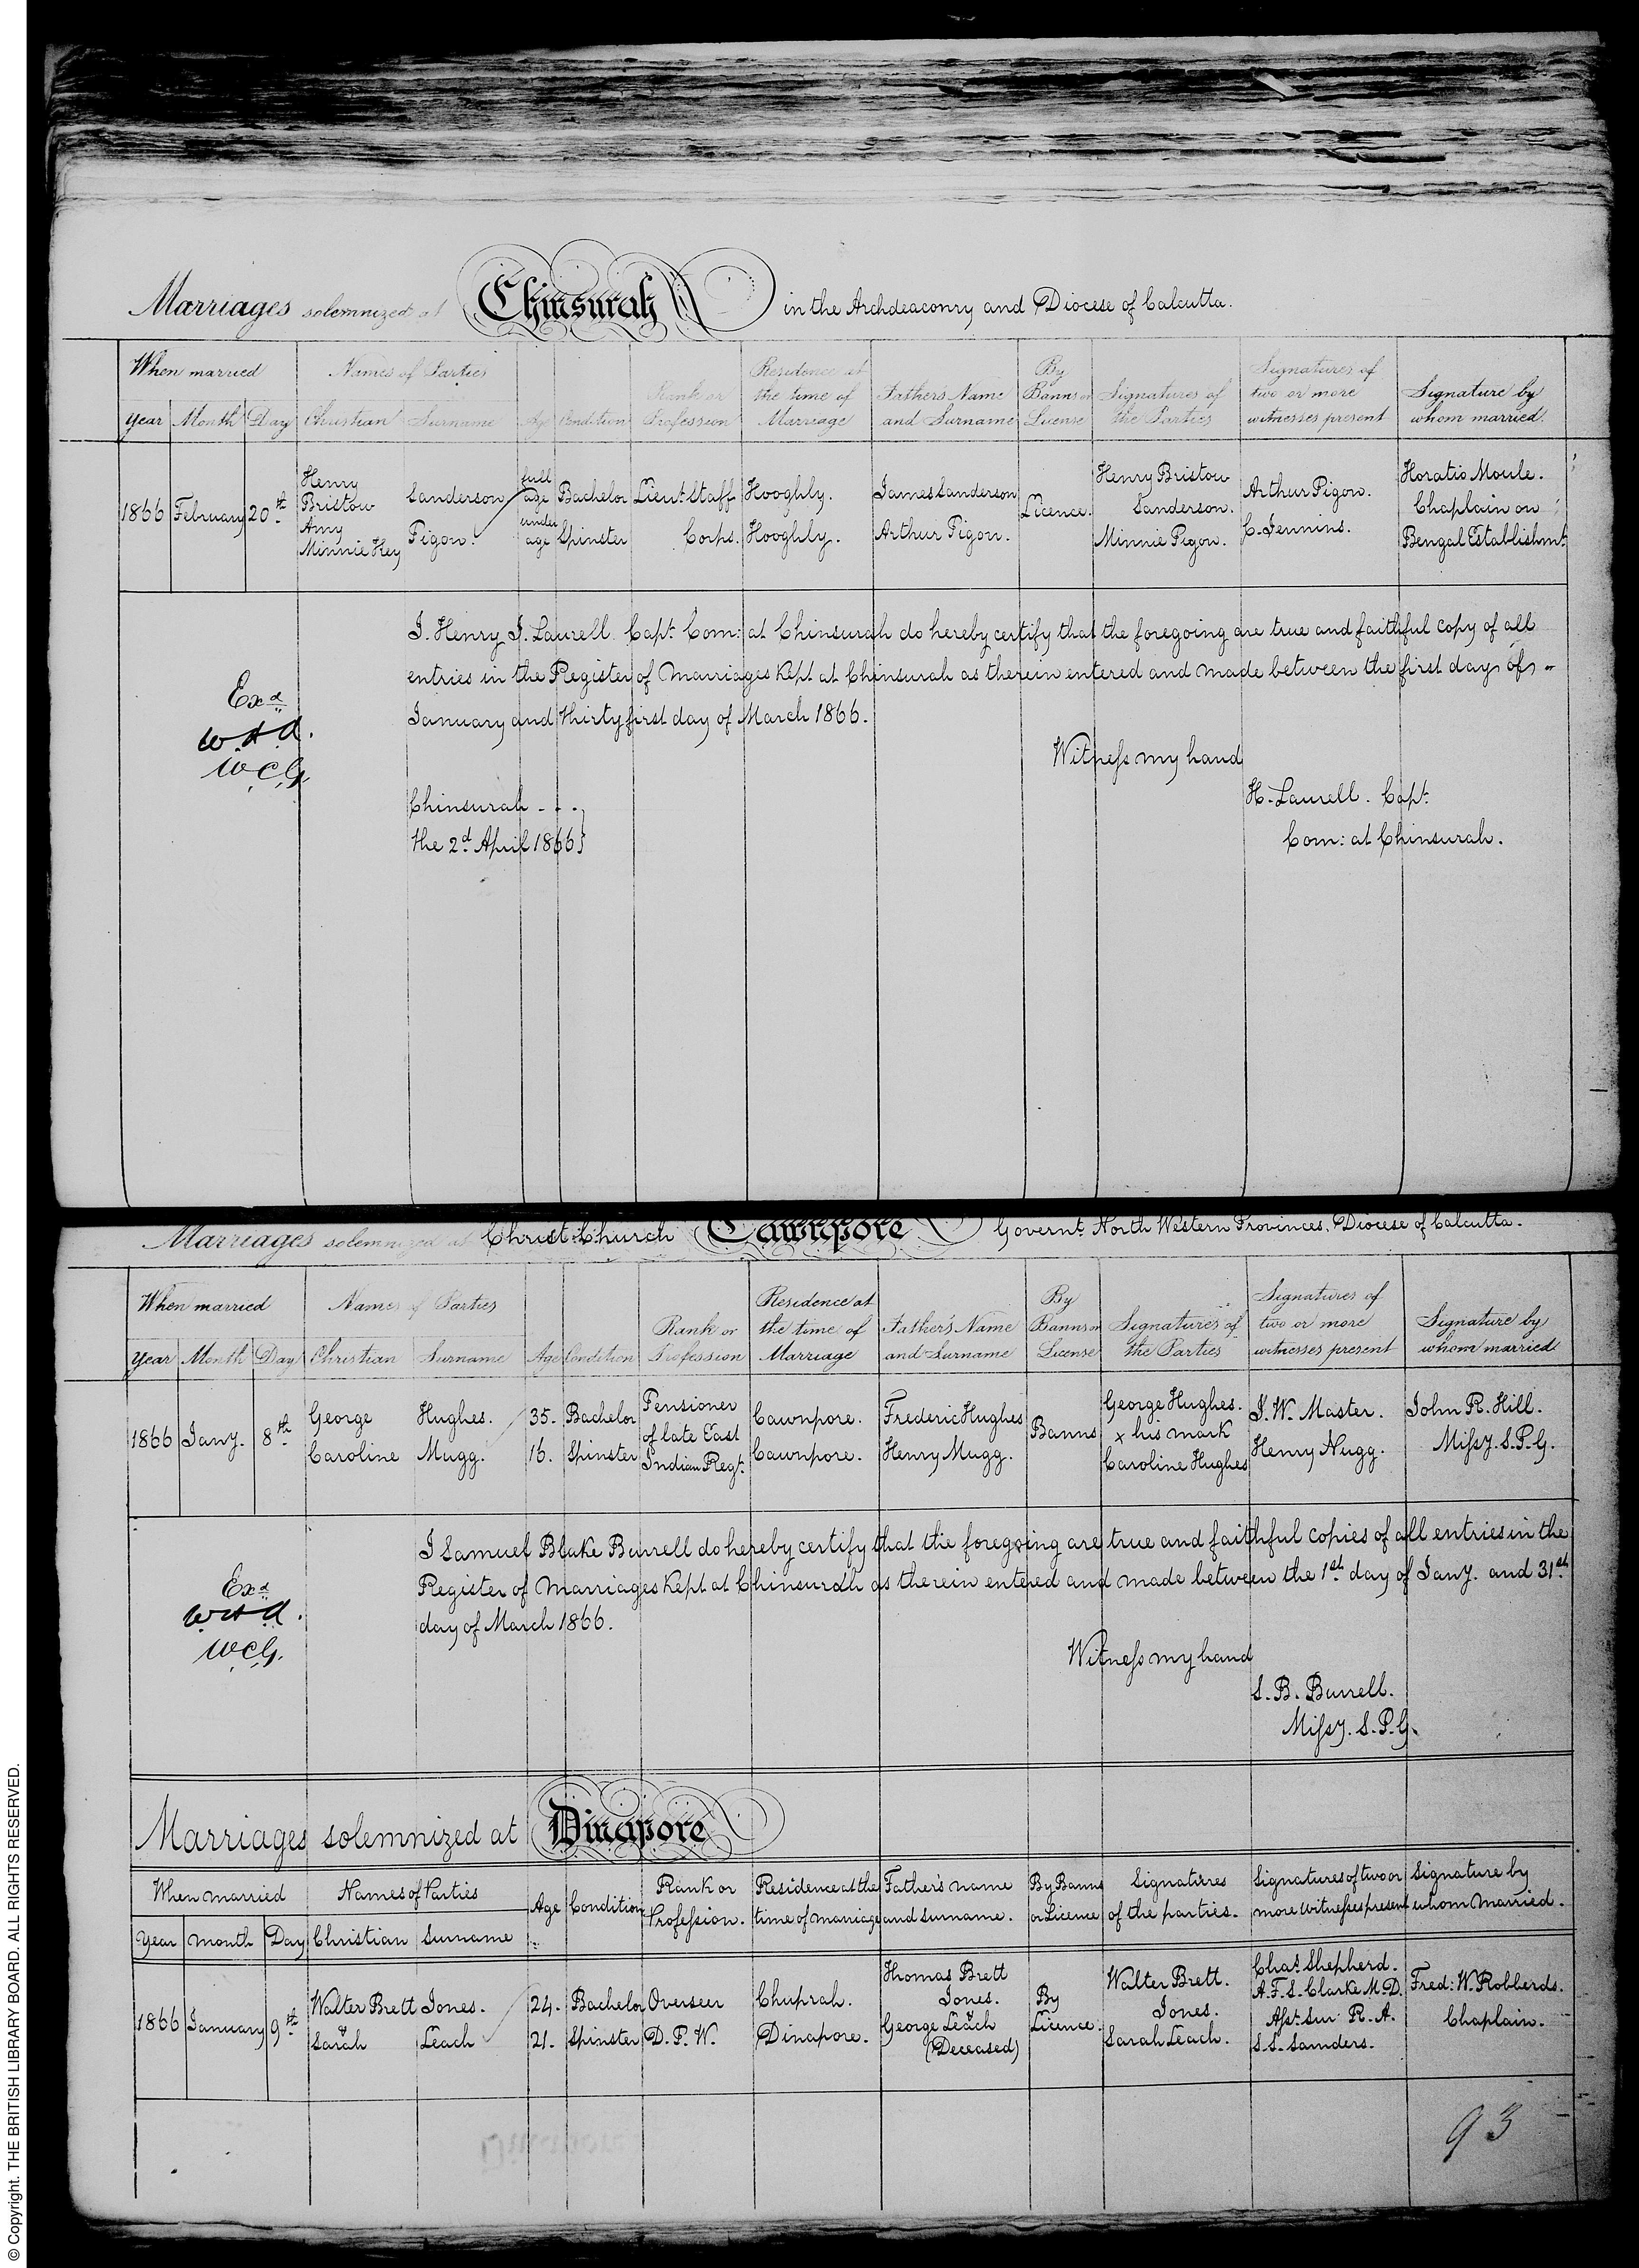 Marriages solemnized at Chinsurah in the Archdeaconry and Diocese of Calcutta.
When married
Names of Parties
Age
Condition
Rank or Profession
Residence at the time of Marriage
Father's Name and Surname
By Banns or License
Signatures of the Parties
Signatures of two or more witnesses present
Signature by whom married.
Year Month Day Christian Surname
1866 February 20th
Henry Bristow Sanderson full age Bachelor Lieut Staff Corps. Hooghly. James Sanderson
Amy Minnie Key Pigou. under age Spinster Hooghly. Arthur Pigou.
Licence.
Henry Bristow Sanderson.
Minnie Pigou.
Arthur Pigou.
C. Jennins.
Horatio Moule.
Chaplain on
Bengal Establishmt
I. Henry J. Laurell. Capt. Com: at Chinsurah do hereby certify that the foregoing are true and faithful copy of all
entries in the Register of Marriages Kept at Chinsurah as therein entered and made between the first days of
January and thirty first day of March 1866.
Exd
W.H.A.
W.C.G.
Witness my hand
H. Laurell. Capt.
Com: at Chinsurah.
Chinsurah - - -
the 2d April 1866
Marriages solemnized at Christ Church Cawnpore Governt North Western Provinces. Diocese of Calcutta.
When married
Names of Parties
Age
Condition
Rank or Profession
Residence at the time of Marriage
Father's Name and Surname
By Banns or License
Signatures of the Parties
Signatures of two or more witnesses present
Signature by whom married
Year Month Day Christian Surname
1866 Jany. 8th
George Hughes. 35. Bachelor Pensioner of late East Indian Regt. Cawnpore. Frederic Hughes
Caroline Mugg. 16. Spinster Cawnpore. Henry Mugg.
Banns
George Hughes.
x his mark
Caroline Hughes
J. W. Master.
Henry Nugg.
John R. Hill.
Missy. S.P.G.
I Samuel Blake Burrell do hereby certify that the foregoing are true and faithful copies of all entries in the
Register of Marriages Kept at Chinsurah as therein entered and made between the 1st day of Jany. and 31st
day of March 1866.
Exd
W.H.A.
W.C.G.
Witness my hand
S. B. Burrell.
Missy. S.P.G.
Marriages solemnized at Dinapore
When married
Names of Parties
Age
Condition
Rank or Profession.
Residence at the time of marriage
Father's name and surname.
By Banns or Licence
Signatures of the parties.
Signatures of two or more Witnesses present
Signature by whom Married.
Year Month Day Christian Surname
1866 January 9th
Walter Brett Jones. 24. Bachelor Overseer D. P. W. Chuprah. Thomas Brett Jones.
&
Sarah Leach 21. Spinster Dinapore. George Leach (Deceased)
By Licence.
Walter Brett Jones.
Sarah Leach.
Chas. Shepherd.
A. F. S. Clarke M.D.
Asst. Sur R. A.
S. S. Saunders.
Fred: W. Robberds.
Chaplain.
93
© Copyright. THE BRITISH LIBRARY BOARD. ALL RIGHTS RESERVED.